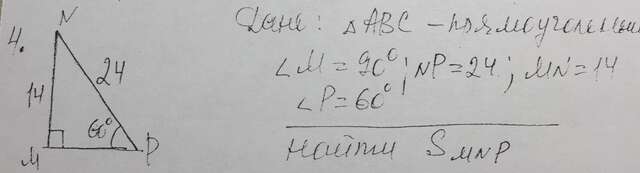 4.
N
14
24
60°
M
P
Дано: △ABC - прямоугольный
∠M = 90°; NP = 24; MN = 14
∠P = 60°
Найти S MNP